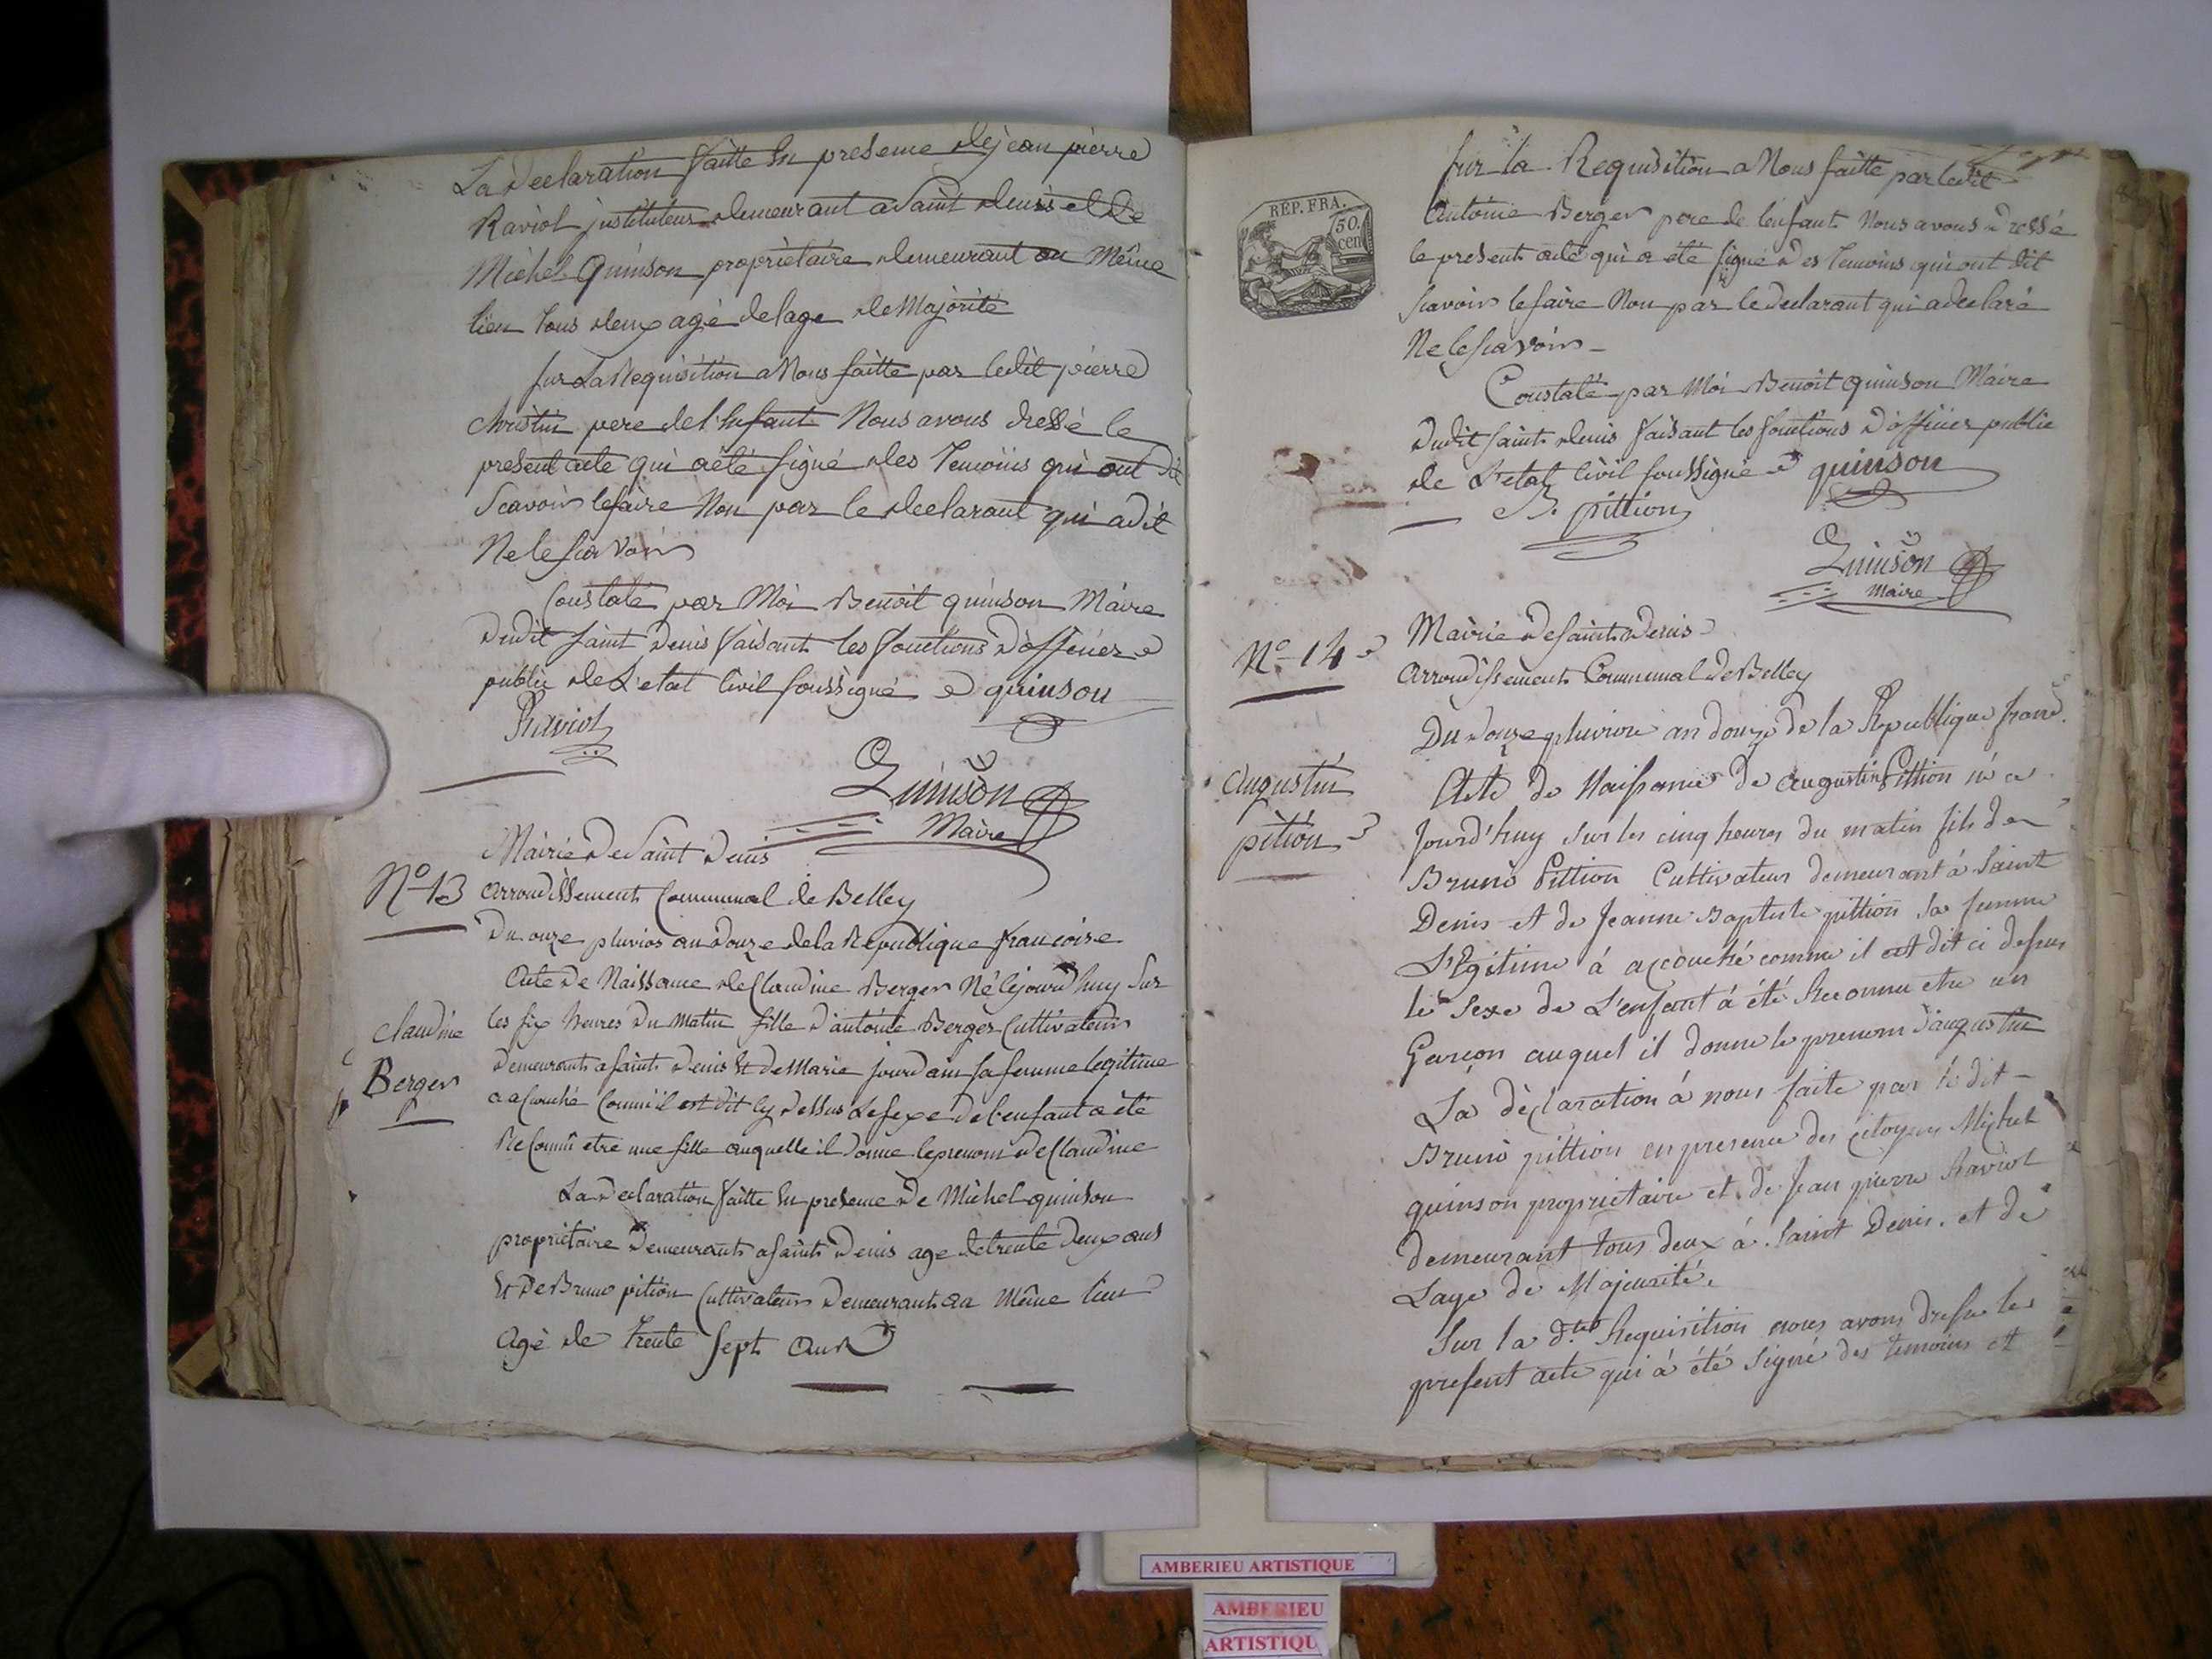 La Declaration faitte En presence de jean pierre
Raviol jnstituteur demeurant a Saint denis et De
Michel Quinson proprietaire demeurant au Même
lieu tous deux agé de lage de Majorité
sur La Requisition a Nous faitte par ledit pierre
Christin pere de l'Enfant Nous avous dressé le
present acte qui a été signé des temoins qui ont dit
Scavoir le faire Non par le declarant qui a dit
Ne le scavoir
Constaté par Moi Benoit quinson Maire
dudit saint Denis faisant les fonctions d'officier
public de L'etat Civil soussigné quinson
Raviol
Quinson
Maire
Mairie De Saint Denis
N° 13 arrondissement Communal de Belley
Du onze pluvios an Douze de la Republique francoise
Acte De Naissance de Claudine Berger Né lejourd'huy Sur
claudine
Berger
les six heures Du Matin fille d'antoine Berger Cultivateur
demeurant a saint Denis Et de Marie jourdain sa femme legitime
a acouché Comme il est dit Cy dessus Le sexe de l'enfant a été
Reconnû etre une fille auquelle il donne le prenom de Claudine
La Declaration faitte En presence De Michel quinson
proprietaire Demeurant a saint Denis age de trente deux ans
Et De Bruno pition Cultivateur Demeurant au Même lieu
agé de trente sept ans
REP. FRA.
50.
cen
sur la Requisition a Nous faitte par ledit
Antoine Berger pere de l'enfant Nous avous dressé
le present acte qui a été signé des temoins qui ont dit
scavoir le faire Non par le declarant qui a declaré
Ne le scavoir
Constaté par Moi Benoit quinson Maire
dudit saint denis faisant les fonctions d'officier public
de L'etat Civil soussigné quinson
B. pittion
Quinson
Maire
N° 14
Mairie de saint Denis
arrondissement Communal de Belley
Du douze pluviose an douze de la Republique franç.
augustin
pition
Acte de Naissance de augustin Pittion né ce
jourd'huy sur les cinq heures du matin fils de
Bruno Pittion Cultivateur demeurant à Saint
Denis et de Jeanne Baptiste pittion sa femme
L'Egitime à accouché comme il est dit ci dessus
le sexe de L'enfant à été Reconnu etre un
Garçon auquel il donne le prenom d'augustin
La déclaration à nous faite par le dit
Bruno pittion en presence des citoyens Michel
quinson proprietaire et de Jean pierre Raviol
demeurant tous deux à Saint Denis. et de
Lage de Majeurité.
Sur la dte Requisition nous avons dressé le
present acte qui à été signé des temoins et
AMBERIEU ARTISTIQUE
AMBERIEU
ARTISTIQU